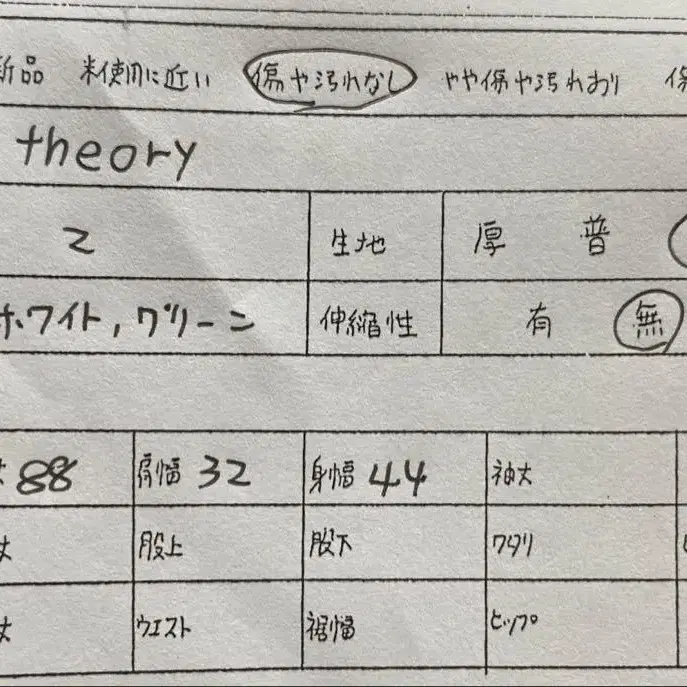 新品 未使用に近い 傷や汚れなし やや傷や汚れあり 傷
theory
2 生地 厚 普
ホワイト, グリーン 伸縮性 有 無
丈 88 肩幅 32 身幅 44 袖丈
丈 股上 股下 ワタリ
丈 ウエスト 裾幅 ヒップ